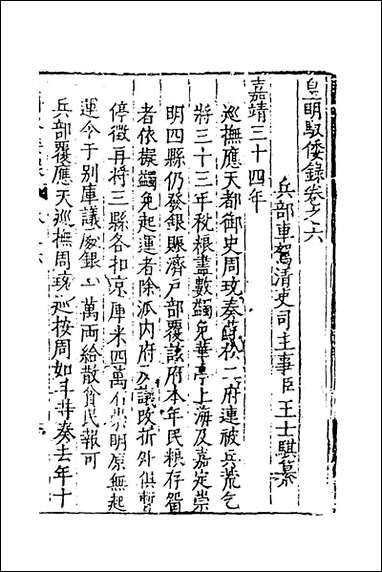 皇明馭倭錄卷之六
兵部車駕清吏司主事臣王士騏纂
嘉靖三十四年
巡撫應天都御史周珫奏蘇松二府連被兵荒乞
將三十三年稅粮盡數蠲免華亭上海及嘉定崇
明四縣仍發銀賑濟戶部覆該府本年民粮存留
者依擬蠲免起運者除派內府及議改折外俱暫
停徵再將三縣各扣京庫米四萬石崇明原無起
運今于別庫議處銀一萬兩給散貧民報可
兵部覆應天巡撫周珫巡按周如斗等奏去年十